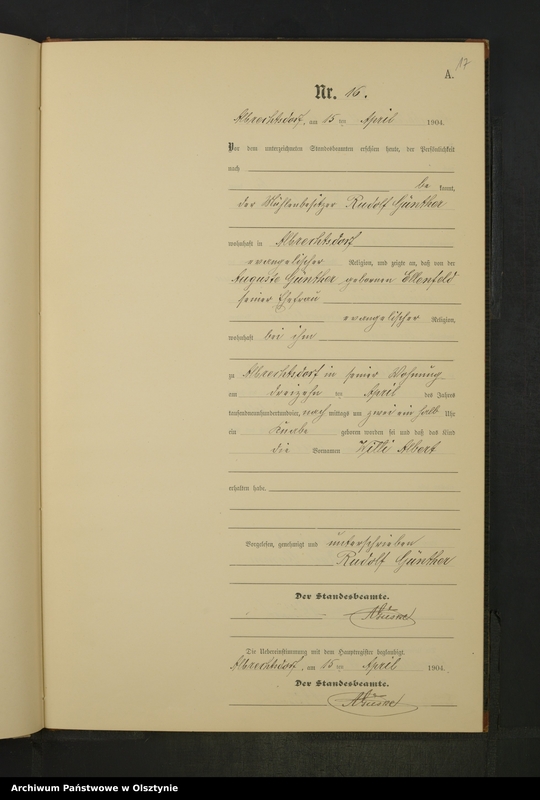 17
A.
Nr. 16.
Albrechtsdorf, am 15 ten April 1904.
Vor dem unterzeichneten Standesbeamten erschien heute, der Persönlichkeit
nach
be kannt,
der Mühlenbesitzer Rudolf Günther
wohnhaft in Albrechtsdorf
evangelischer Religion, und zeigte an, daß von der
Auguste Günther gebornen Ellenfeld
seiner Ehefrau
evangelischer Religion,
wohnhaft bei ihm
zu Albrechtsdorf in seiner Wohnung
am dreizehn ten April des Jahres
tausendneunhundert nach mittags um zwei ein halb Uhr
ein Knabe geboren worden sei und daß das Kind
die Vornamen Willi Albert
erhalten habe.
Vorgelesen, genehmigt und unterschrieben
Rudolf Günther
Der Standesbeamte.
Die Uebereinstimmung mit dem Hauptregister beglaubigt.
Albrechtsdorf, am 15 ten April 1904.
Der Standesbeamte.
Archiwum Państwowe w Olsztynie